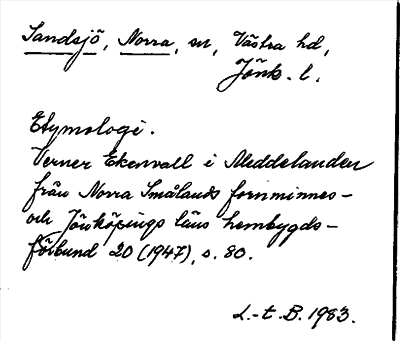 Sandsjö, Norra, sn, Västra hd,
Jönk. l.
Etymologi.
Verner Ekenvall i Meddelanden
från Norra Smålands fornminnes-
och Jönköpings läns hembygds-
förbund 20 (1947), s. 80.
L.-t. B. 1983.